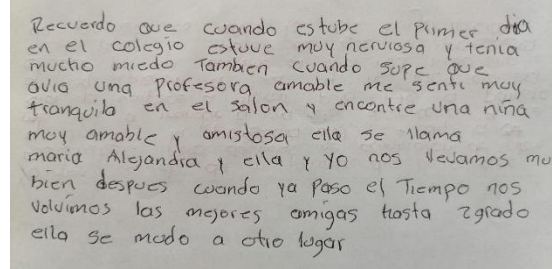 Recuerdo que cuando estube el primer dia
en el colegio estuve muy nerviosa y tenia
mucho miedo Tambien cuando supe que
avia una profesora amable me senti muy
tranquila en el salon y encontre una niña
muy amable y amistosa ella se llama
maria Alejandra y ella y yo nos llevamos mu
bien despues cuando ya paso el Tiempo nos
volvimos las mejores amigas hasta 2grado
ella se mudo a otro lugar